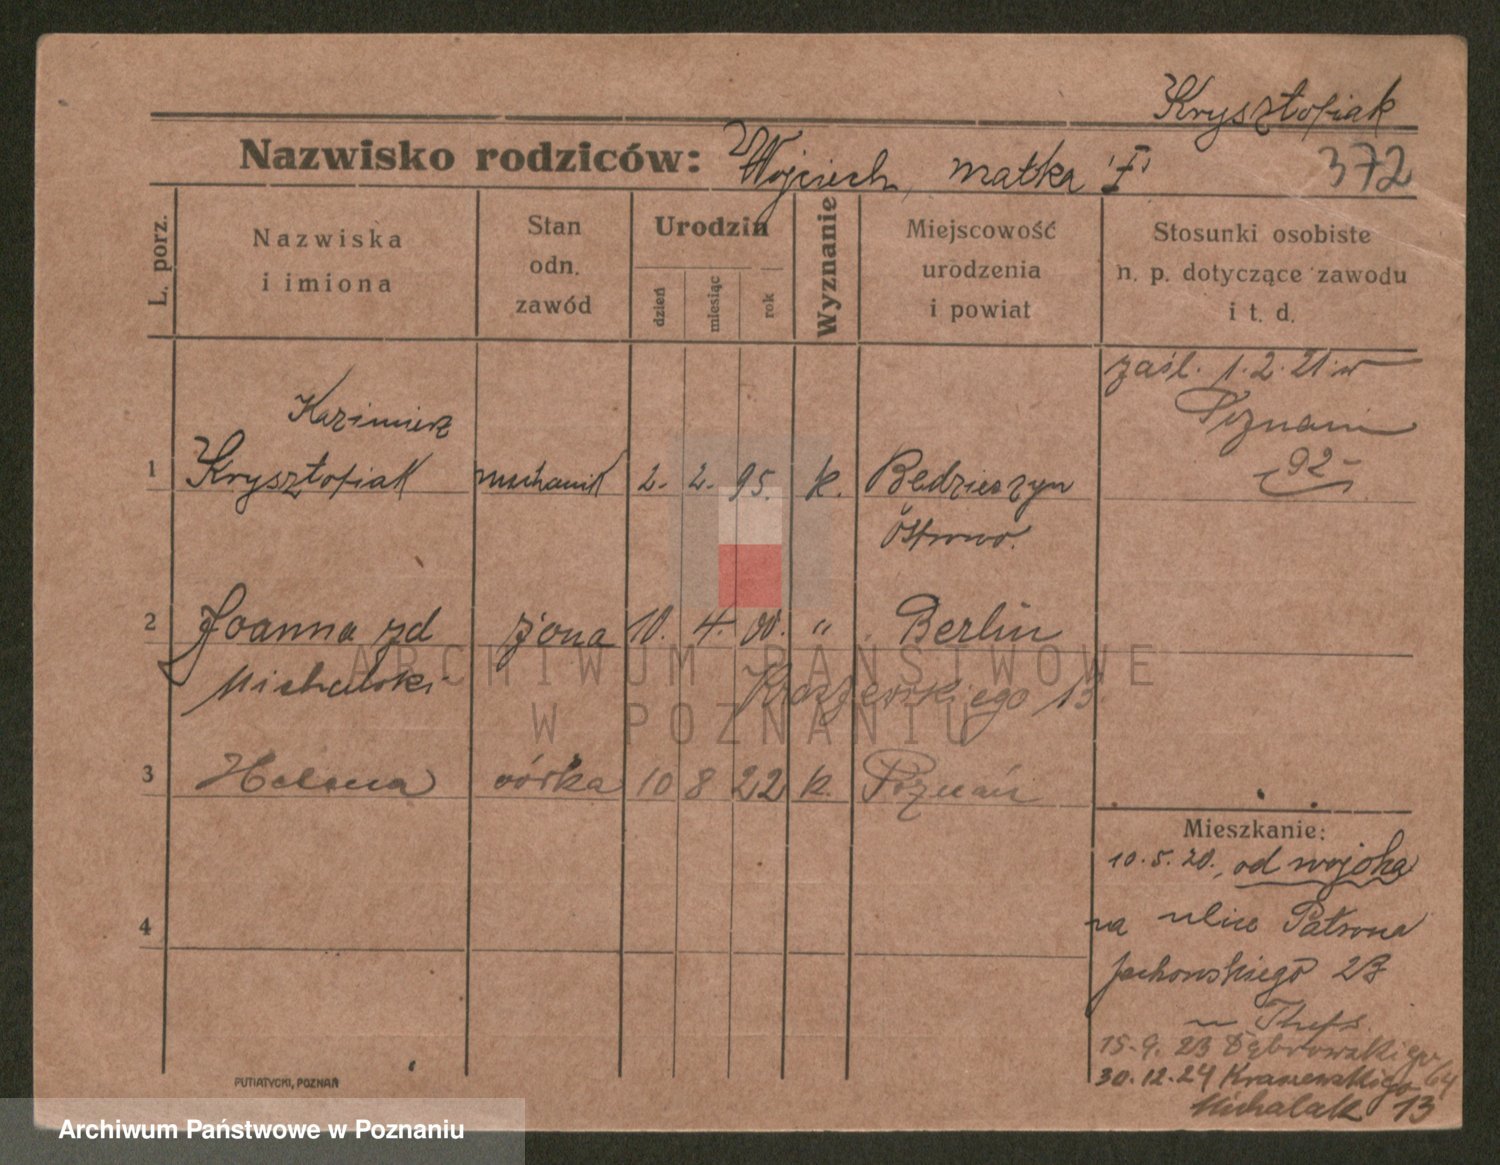 Krysztofiak
Nazwisko rodziców: Wojciech, matka
372
L. porz.
Nazwiska
i imiona
Stan
odn.
zawód
Urodzin
dzień
miesiąc
rok
Wyznanie
Miejscowość
urodzenia
i powiat
Stosunki osobiste
n. p. dotyczące zawodu
i t. d.
zaśl. 1.2.21 w
Poznaniu
92
Kazimierz
1 Krysztofiak mechanik 2. 2. 95. k. Będzieszyn
Ostrowo.
2 Joanna zd żona 10. 4. 00. " Berlin
Michalski
Kraszewskiego 13.
3 Helena córka 10 8 22 k. Poznań
4
Mieszkanie:
10.5.20., od wojska
na ulice Patrona
Jackowskiego 23
15.9.23 Dąbrowskiego 64
30.12.24 Kraszewskiego
Michalak 13
PUTIATYCKI, POZNAŃ
ARCHIWUM PAŃSTWOWE
W POZNANIU
Archiwum Państwowe w Poznaniu